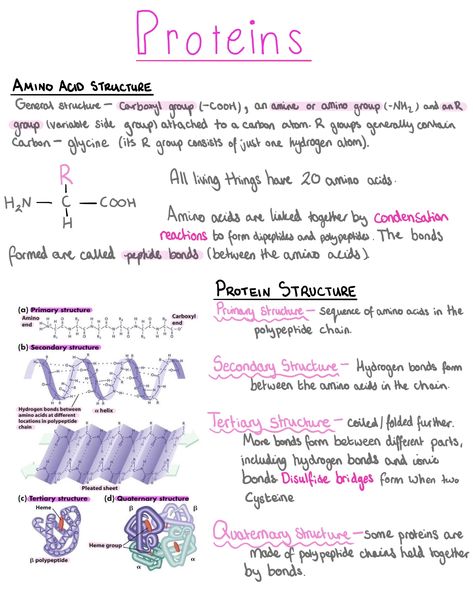 Proteins
AMINO ACID STRUCTURE
General structure – Carboxyl group (-COOH), an amine or amino group (-NH₂) and an R
group (variable side group) attached to a carbon atom. R groups generally contain
Carbon – glycine (its R group consists of just one hydrogen atom).
R
H₂N – C – COOH
H
All living things have 20 amino acids.
Amino acids are linked together by condensation
reactions to form dipeptides and polypeptides. The bonds
formed are called peptide bonds (between the amino acids)
PROTEIN STRUCTURE
(a) Primary structure
Amino
end
Carboxyl
end
(b) Secondary structure
Hydrogen bonds between
amino acids at different
locations in polypeptide
chain
α helix
Pleated sheet
(c) Tertiary structure
Heme
β polypeptide
(d) Quaternary structure
β
β
Heme group
α
α
Primary Structure – Sequence of amino acids in the
polypeptide chain.
Secondary Structure – Hydrogen bonds form
between the amino acids in the chain.
Tertiary Structure – coiled/folded further.
More bonds form between different parts,
including hydrogen bonds and ionic
bonds Disulfide bridges form when two
Cysteine
Quaternary Structure – Some proteins are
made of polypeptide chains held together
by bonds.